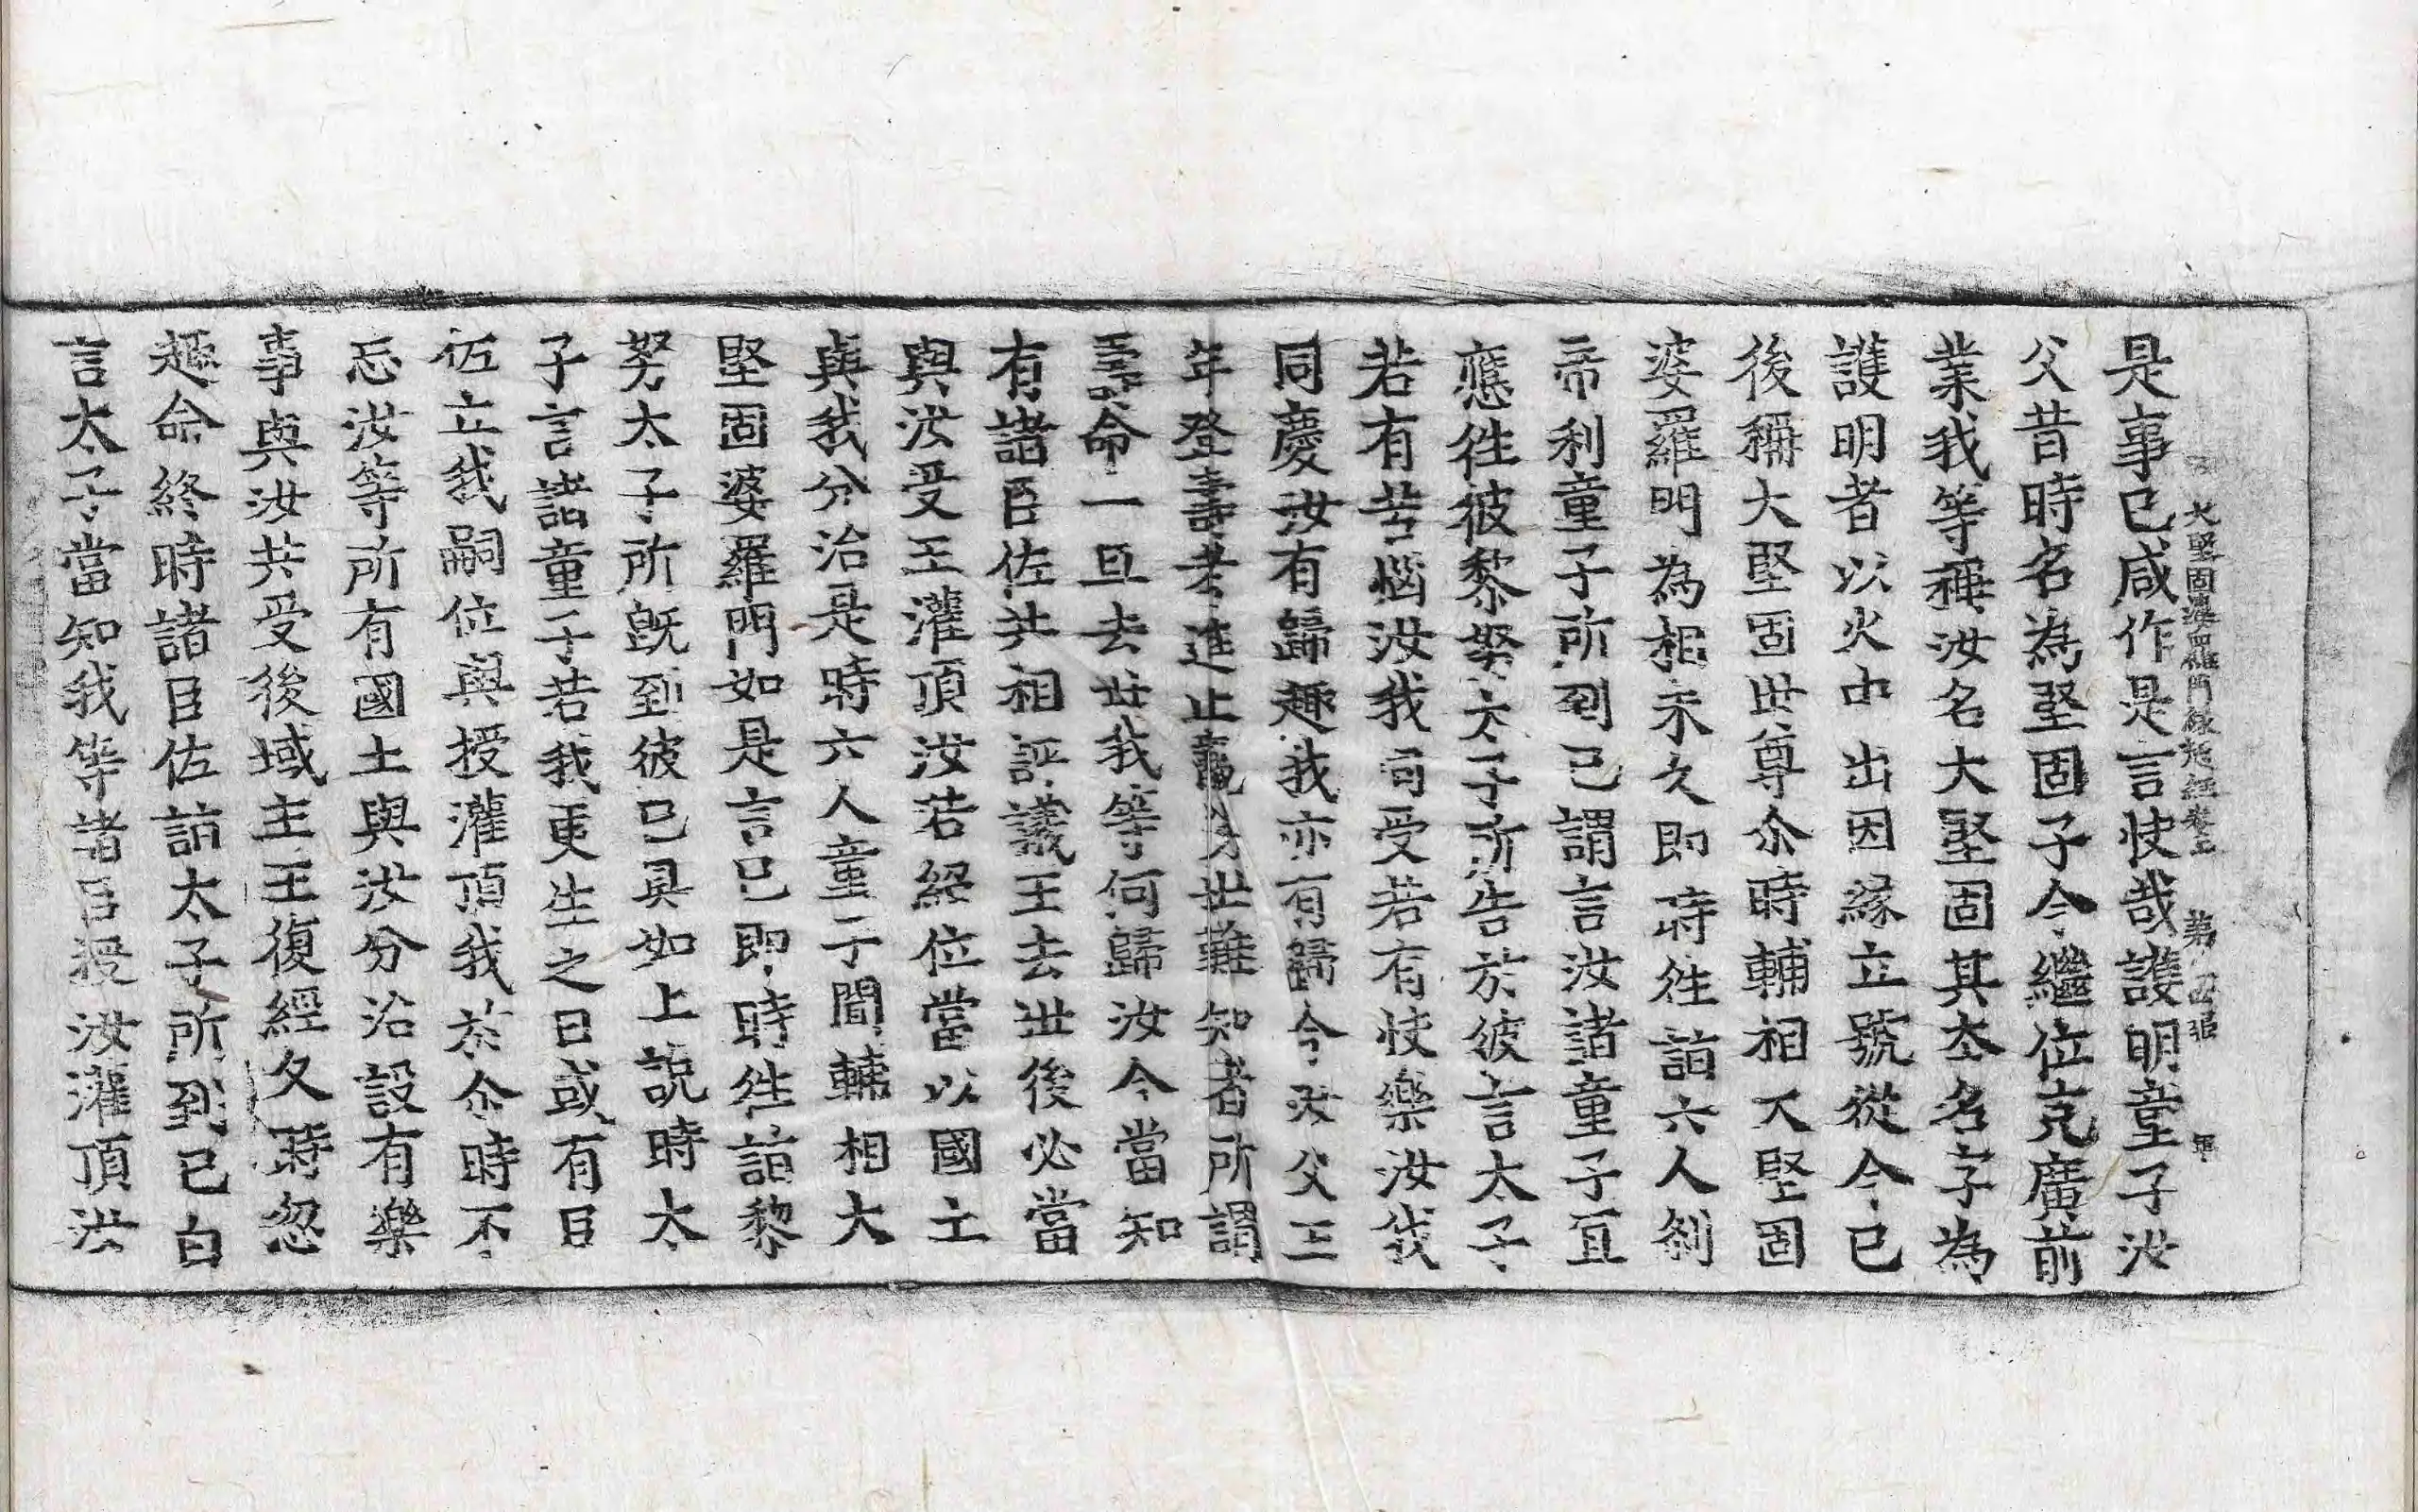 大堅固婆羅門緣起經卷上 第四張 軍
是事已咸作是言快哉護明童子汝
父昔時名為堅固子今繼位克廣前
業我等稱汝名大堅固其本名字為
護明者以火中出因緣立號從今已
後稱大堅固世尊尒時輔相大堅固
婆羅門為相未久即時往詣六人剎
帝利童子所到已謂言汝諸童子宜
應往彼黎努太子所告於彼言太子
若有苦惱汝我同受若有快樂汝我
同慶汝有歸趣我亦有歸今汝父王
年登壽耄進止衰朽世難知者所謂
壽命一旦去世我等何歸汝今當知
有諸臣佐共相評議王去世後必當
與汝受王灌頂汝若紹位當以國土
與我分治是時六人童子聞輔相大
堅固婆羅門如是言已即時往詣黎
努太子所既到彼已具如上說時太
子言諸童子若我更生之日或有臣
佐立我嗣位與授灌頂我於尒時不
忘汝等所有國土與汝分治設有樂
事與汝共受後域主王復經久時忽
趣命終時諸臣佐詣太子所到已白
言太子當知我等諸臣授汝灌頂汝